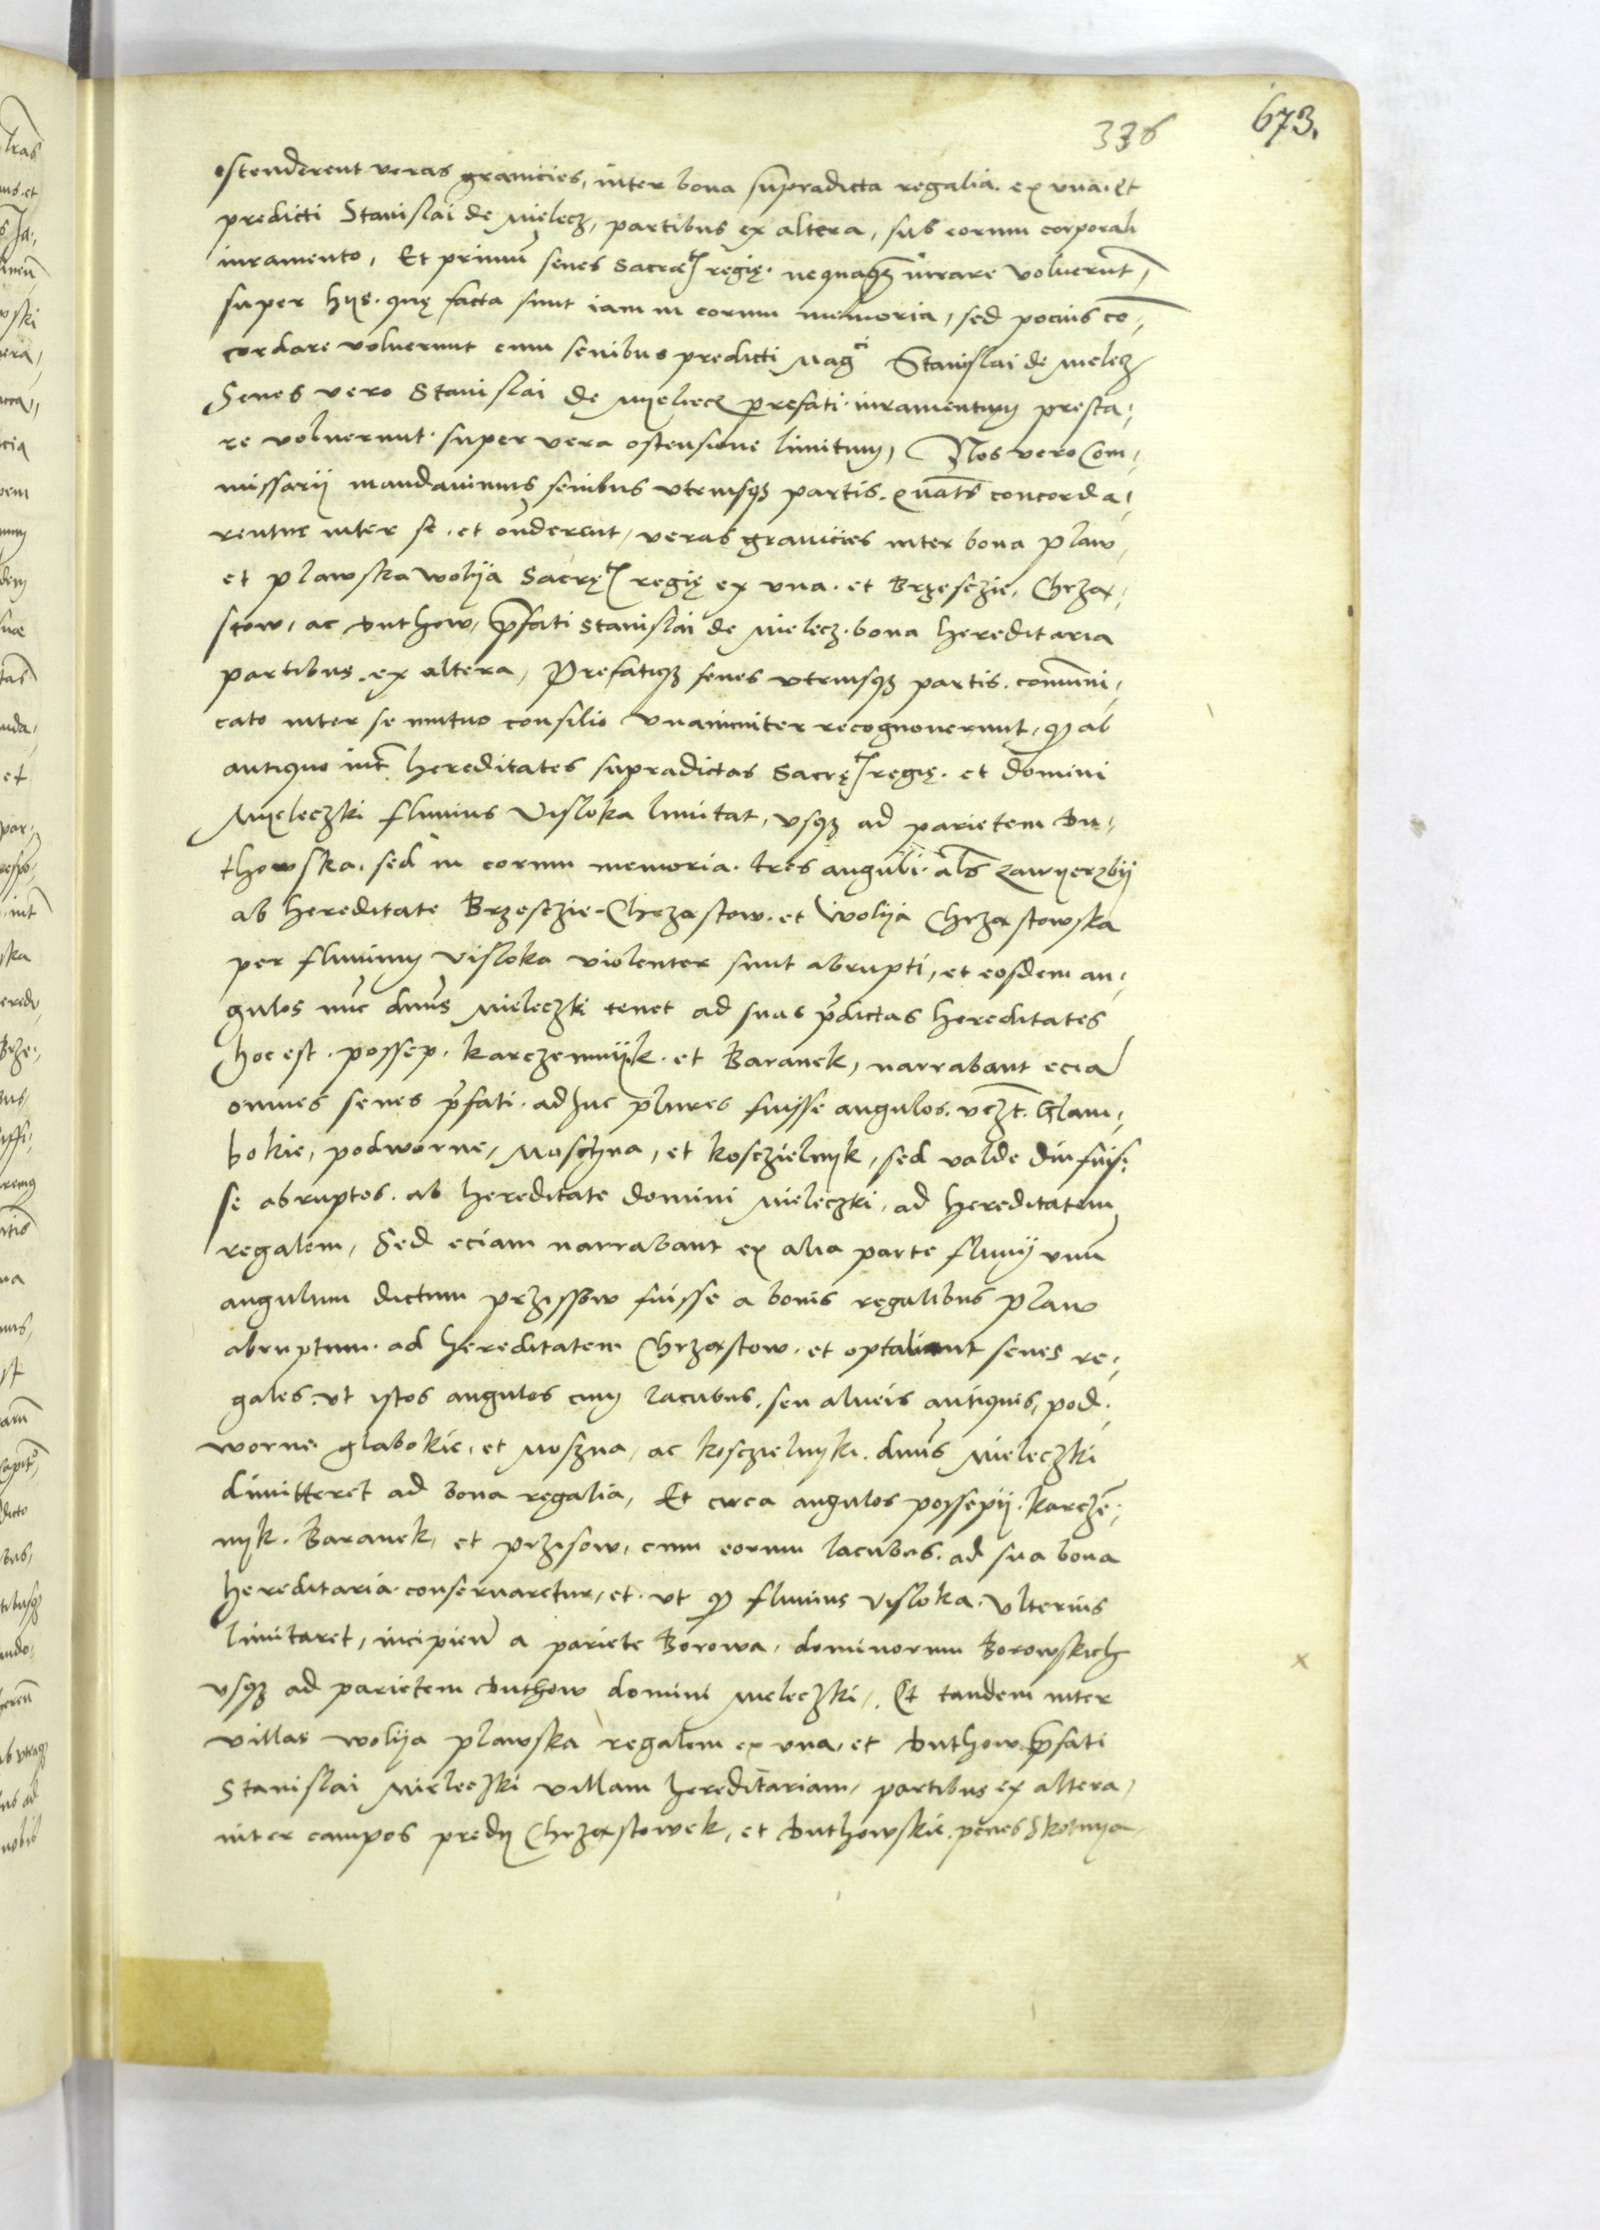 336 673.
ostenderent veras granicies, inter bona supradicta regalia. ex vna. Et
predicti Stanislai de Mielecz, partibus ex altera, sub eorum corporali
iuramento, Et primum̃ senes Sacræ regię. nequaq̃ iurare voluerũt,
super hijs. quę facta sunt iam in eorum memoria, sed pocius cõ-
cordare voluerunt cum senibus predicti Mag^ci Stanislai de Melecz
Senes vero Stanislai de Myeliecz prefati iuramentum presta-
re voluerunt. super vera ostensione limitum, Nos vero Com-
missarij mandauimus senibus vtriusq3 partis. quat̃s concorda-
rentur inter se. et oñderent, veras granicies inter bona Plaw,
et Plawska wolija Sacrę regię ex vna. et Brzesczie, Chrzą-
stow, ac Buthow, p̃fati Stanislai de Mielecz. bona hereditaria
partibus. ex altera, Prefatiq3 senes vtriusq3 partis. com̃uni-
cato inter se mutuo consilio vnanimiter recognouerunt, q̃ ab
antiquo int̃ hereditates supradictas Sacrę regię. et domini
Myeleczki fluuius Visloka limitat, vsq3 ad parietem Bu-
thowska. sed in eorum memoria. tres anguli. al̃s zawyerzbij
ab hereditate Brzesczie-Chrząstow. et Wolija Chrząstowska
per fluuium Visloka violenter sunt abrupti, et eosdem an-
gulos nũc dñus Mieleczki tenet ad suas p̃dictas hereditates
hoc est. possep. karczemnijk. et Baranek, narrabant eciã
omnes senes p̃fati. adhuc plures fuisse angulos. vcz̃t. Glam-
bokie, podworne, Moschna, et kosczielnyk, sed valde diu fuis-
se abruptos. ab hereditate domini Mieleczki, ad hereditatem
regalem, Sed eciam narrabant ex alia parte fluuij vnũ
angulum dictum przissow fuisse a bonis regalibus Plaw
abruptum. ad hereditatem Chrząstow. et optabant senes re-
gales. vt istos angulos cum lacubus. seu alueis antiquis, pod-
worne glabokie, et Moszna, ac kosczielnyki. dñus Mieleczki
dimitteret ad bona regalia, Et circa angulos possepij. karczẽ-
nyk. Baranek, et przisow, cum eorum lacubus. ad sua bona
hereditaria conseruaretur, et. vt q̃ fluuius Visloka. vlterius
limitaret, incipieñ a pariete Borowa, dominorum Borowskich
vsq3 ad parietem Buthow domini Meleczki, Et tandem inter
villas wolija plawska regalem ex vna, et Buthow p̃fati
Stanislai Mieleczki villam hereditariam, partibus ex altera,
inter campos predij Chrząstowek, et Buthowskie. penes Skotnya